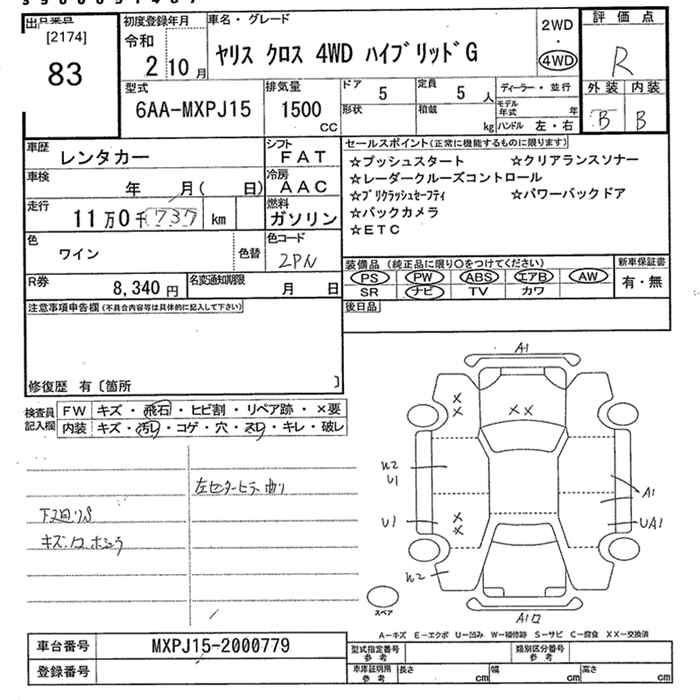 出品番号
[2174]
83
初度登録年月
令和
2年 10月
車名・グレード
ヤリス クロス 4WD ハイブリッドG
2WD
・
4WD
評価点
R
外装 内装
B B
型式
6AA-MXPJ15
排気量
1500
CC
ドア 5
形状
定員 5 人
積載 kg
ディーラー・並行
モデル年式 年
ハンドル 左・右
車歴
レンタカー
シフト
FAT
車検
年 月( 日)
冷房
AAC
走行
11万0千737 km
燃料
ガソリン
色
ワイン
色替
色コード
2PN
R券
8,340 円
名変通知期限
月 日
セールスポイント(正常に機能するものに限ります)
☆プッシュスタート ☆クリアランスソナー
☆レーダークルーズコントロール
☆プリクラッシュセーフティ ☆パワーバックドア
☆バックカメラ
☆ETC
装備品 (純正品に限り○をつけてください)
PS PW ABS エアB AW
SR ナビ TV カワ
新車保証書
有・無
後日品
注意事項申告欄(不具合内容等は具体的に記入して下さい)
修復歴 有〔箇所 〕
検査員記入欄
FW キズ・飛石・ヒビ割・リペア跡・×要
内装 キズ・汚レ・コゲ・穴・スレ・キレ・破レ
左センターピラー曲り
下廻りS
A1
××
××
××
W2
U1
U1
W2
A1
UA1
スペア
A-キズ E-エクボ U-凹み W-補修跡 S-サビ C-腐食 XX-交換済
車台番号 MXPJ15-2000779
登録番号
型式指定番号 参考
類別区分番号 参考
車庫証明用 参考
長さ cm 幅 cm 高さ cm